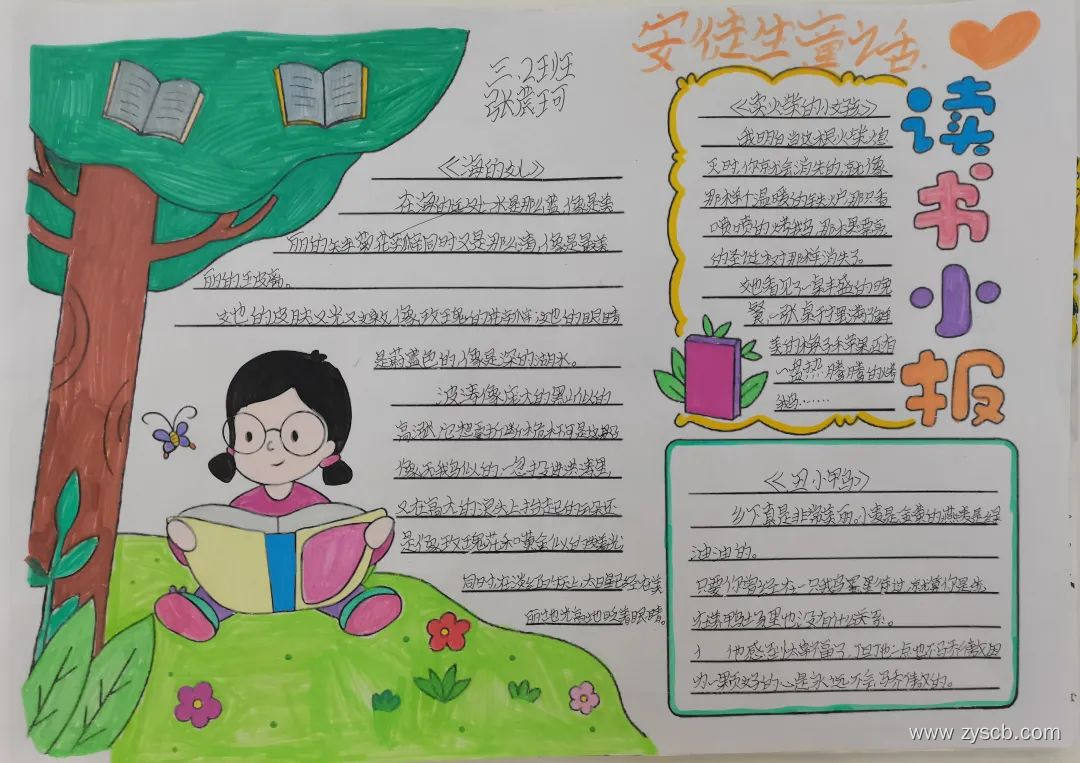 安徒生童话
三.2班
张震珂
读书小报
《海的女儿》
在海的远处,水是那么蓝,像是美
丽的矢车菊花瓣,同时又是那么清,像是最美
丽的玻璃。
她的皮肤又光又嫩,像玫瑰的花瓣,她的眼睛
是蔚蓝色的,像是深的湖水。
波涛像庞大的黑山似的
高涨,它想要折断桅杆。可是这船
像天鹅似的,一忽投进洪涛里,
又在高大的浪头上抬起
是像玫瑰花和黄金似的
同时,在淡红的云上,太白星已经在美
丽地光亮地眨着眼睛。
《卖火柴的小女孩》
我明白当这根火柴熄
灭时,你就会消失的,就像
那样个温暖的铁炉,那只香
喷喷的烤鹅,那棵漂亮
的圣诞树那样消失了。
她看见了一桌丰盛的晚
餐,
一盘热腾腾的烤
鹅……
《丑小鸭》
乡下真是非常美丽,小麦是金黄的,燕麦是绿
油油的。
只要你曾经在一只天鹅蛋里待过,就算你是生
在养鸭场里也没有什么关系。
他感到太幸福了,但他一点也不骄傲,因
为一颗好的心是永远不会骄傲的。
www.zyscb.com